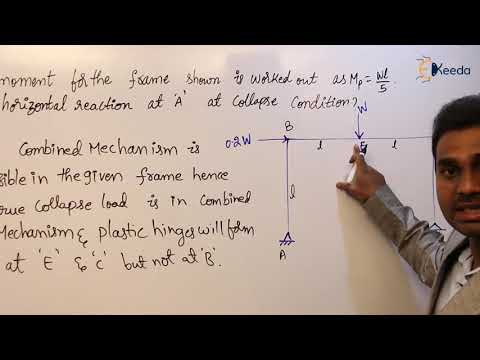 moment for the frame shown is worked out as Mp = Wl/5.
horizontal reaction at 'A' at Collapse Condition?
Ekeeda
W
B
0.2W
E
l
l
l
l
A
Combined Mechanism is
sible in the given frame hence
collapse load is in combined
Mechanism & plastic hinges will form
at 'E' & 'C' but not at 'B'.